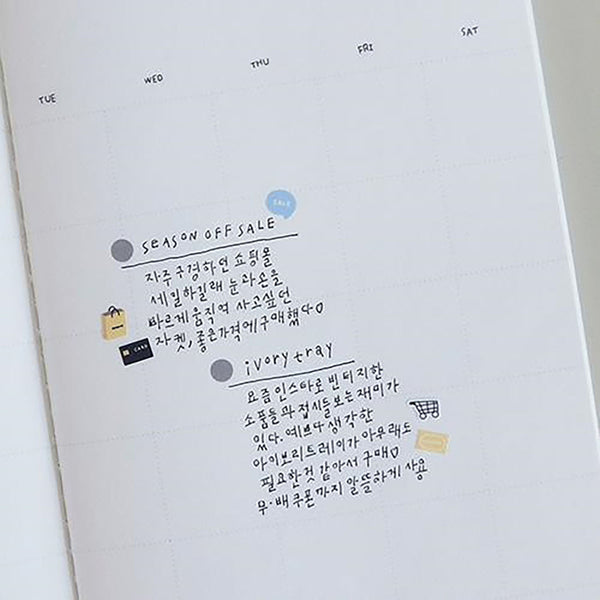 TUE WED THU FRI SAT
SALE
SEASON OFF SALE
자주 구경하던 쇼핑몰
세일하길래 눈과 손을
바르게 움직여 사고싶던
자켓, 좋은가격에 구매했다♡
CARD
ivory tray
요즘 인스타로 빈티지한
소품들과 접시들 보는 재미가
있다. 예쁘다 생각한
아이보리 트레이가 아무래도
필요한 것 같아서 구매♡
무·배 쿠폰까지 알뜰하게 사용